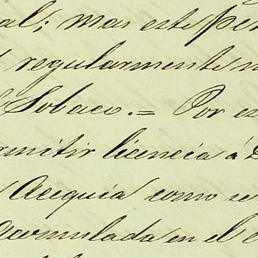 al; mas este
regularmente
Sobaco.= Por es
rmitir licencia á D
Acequia como se
acomulada en el